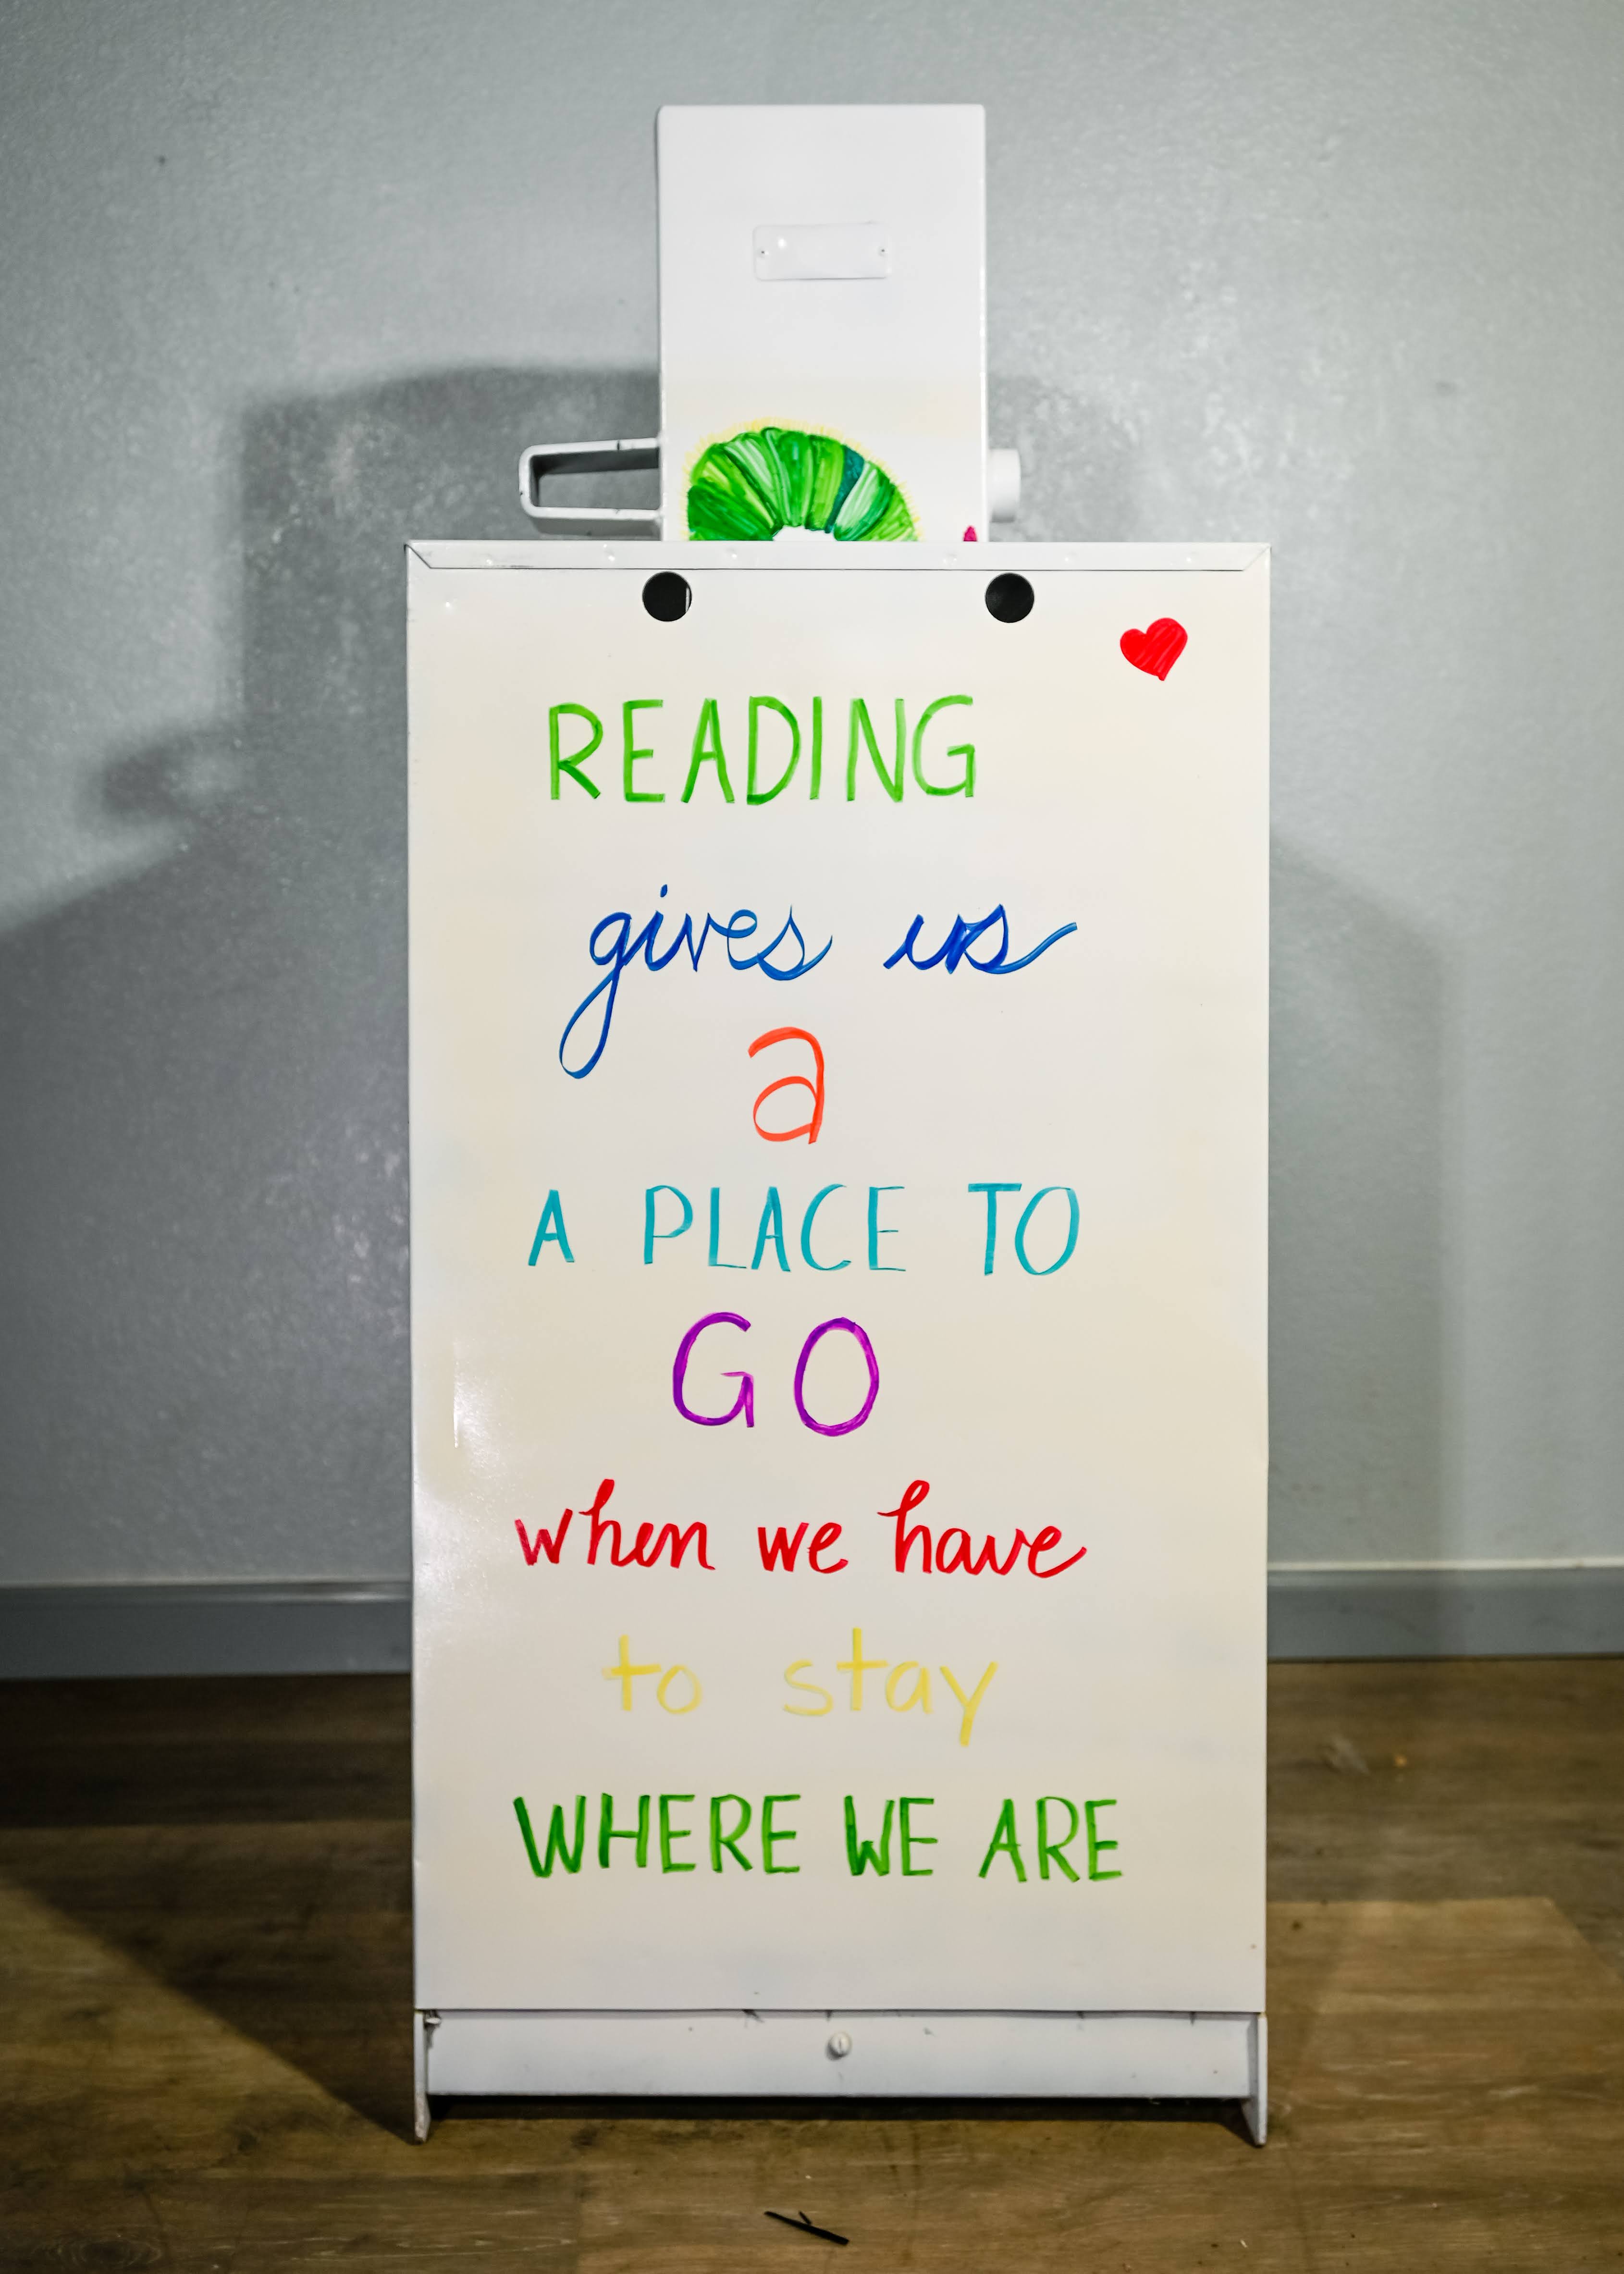 READING
gives us
a
A PLACE TO
GO
when we have
to stay
WHERE WE ARE